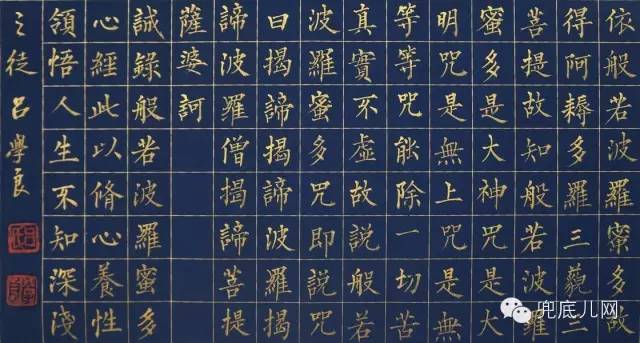 依般若波羅蜜多故
得阿耨多羅三藐三
菩提故知般若波羅
蜜多是大神咒是大
明咒是無上咒是無
等等咒能除一切苦
真實不虛故說般若
波羅蜜多咒即說咒
曰揭諦揭諦波羅揭
諦波羅僧揭諦菩提
薩婆訶
誠錄般若波羅蜜多
心經此以脩心養性
領悟人生不知深淺
之徒呂學良
兜底儿网